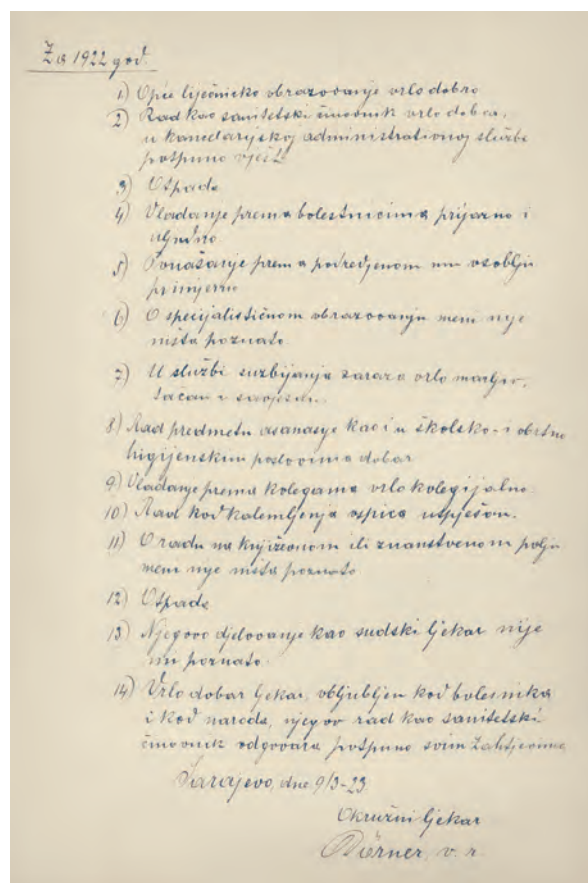 Za 1922 god.
1) Opće liječničko obrazovanje vrlo dobro
2) Rad kao sanitetski činovnik vrlo dobar,
u kancelarijskoj administrativnoj službi
potpuno vješt.
3) Otpada
4) Vladanje prema bolestnicima prijazno i
uljudno
5) Ponašanje prema podredjenom mu osoblju
primjerno
6) O specijalističnom obrazovanju meni nije
ništa poznato
7) U službi suzbijanja zaraza vrlo marljiv,
tačan i savjestan.
8) Rad predmetu asanacije kao i u školsko- i obrtno
higijenskim poslovima dobar
9) Vladanje prema kolegama vrlo kolegijalno
10) Rad kod kalemljenja ospica uspješan.
11) O radu na književnom ili znanstvenom polju
meni nije ništa poznato
12) Otpada
13) Njegovo djelovanje kao sudski ljekar nije
mi poznato.
14) Vrlo dobar ljekar, obljubljen kod bolesnika
i kod naroda, njegov rad kao sanitetski
činovnik odgovara potpuno svim zahtjevima
Sarajevo, dne 9/3-23
Okružni ljekar
v. r.